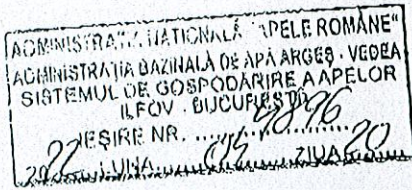 ADMINISTRAȚIA NAȚIONALĂ "APELE ROMÂNE"
ADMINISTRAȚIA BAZINALĂ DE APĂ ARGEȘ - VEDEA
SISTEMUL DE GOSPODĂRIRE A APELOR
ILFOV - BUCUREȘTI
IEȘIRE NR. ........
2022 LUNA 05 ZIUA 20